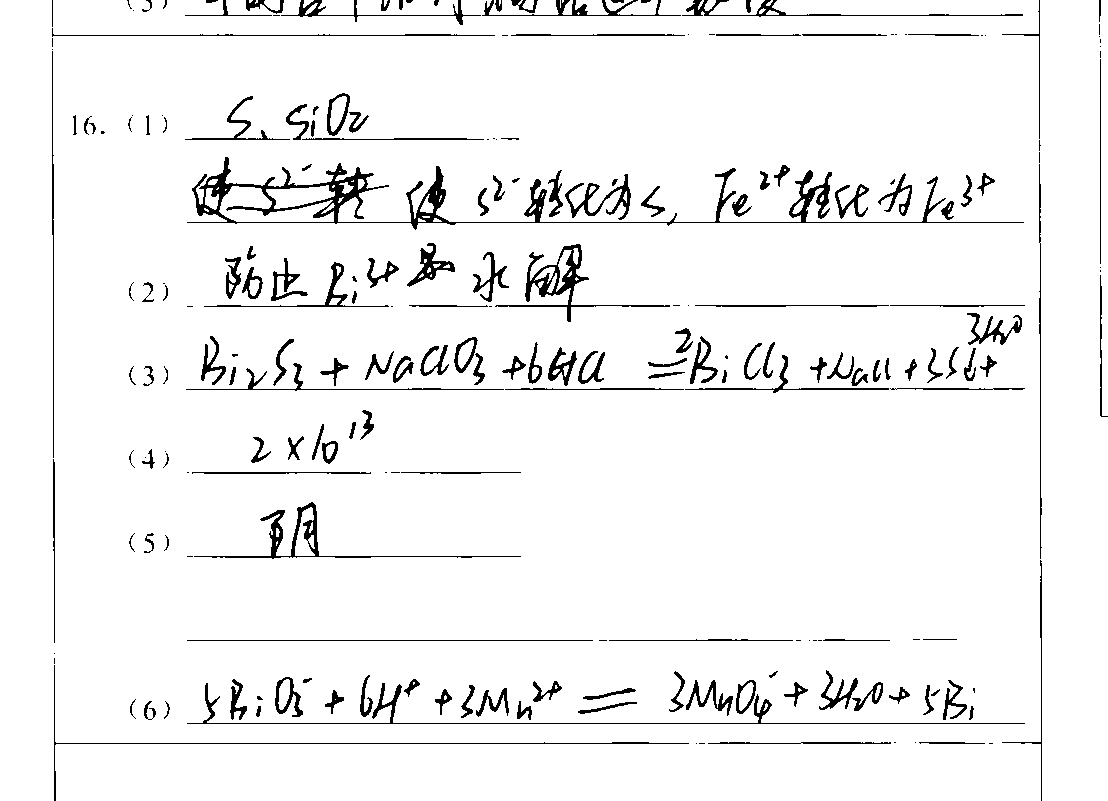 (3)
16.(1) S、SiO₂
使 S²⁻转化为S, Fe²⁺转化为Fe³⁺
(2) 防止Bi³⁺ 水解
(3) Bi₂S₃ + NaClO₃ + 6HCl = 2BiCl₃ + NaCl + 3S↓ + 3H₂O
(4) 2×10¹³
(5) 阴
(6) 5BiO₃⁻ + 6H⁺ + 3Mn²⁺ = 3MnO₄⁻ + 3H₂O + 5Bi